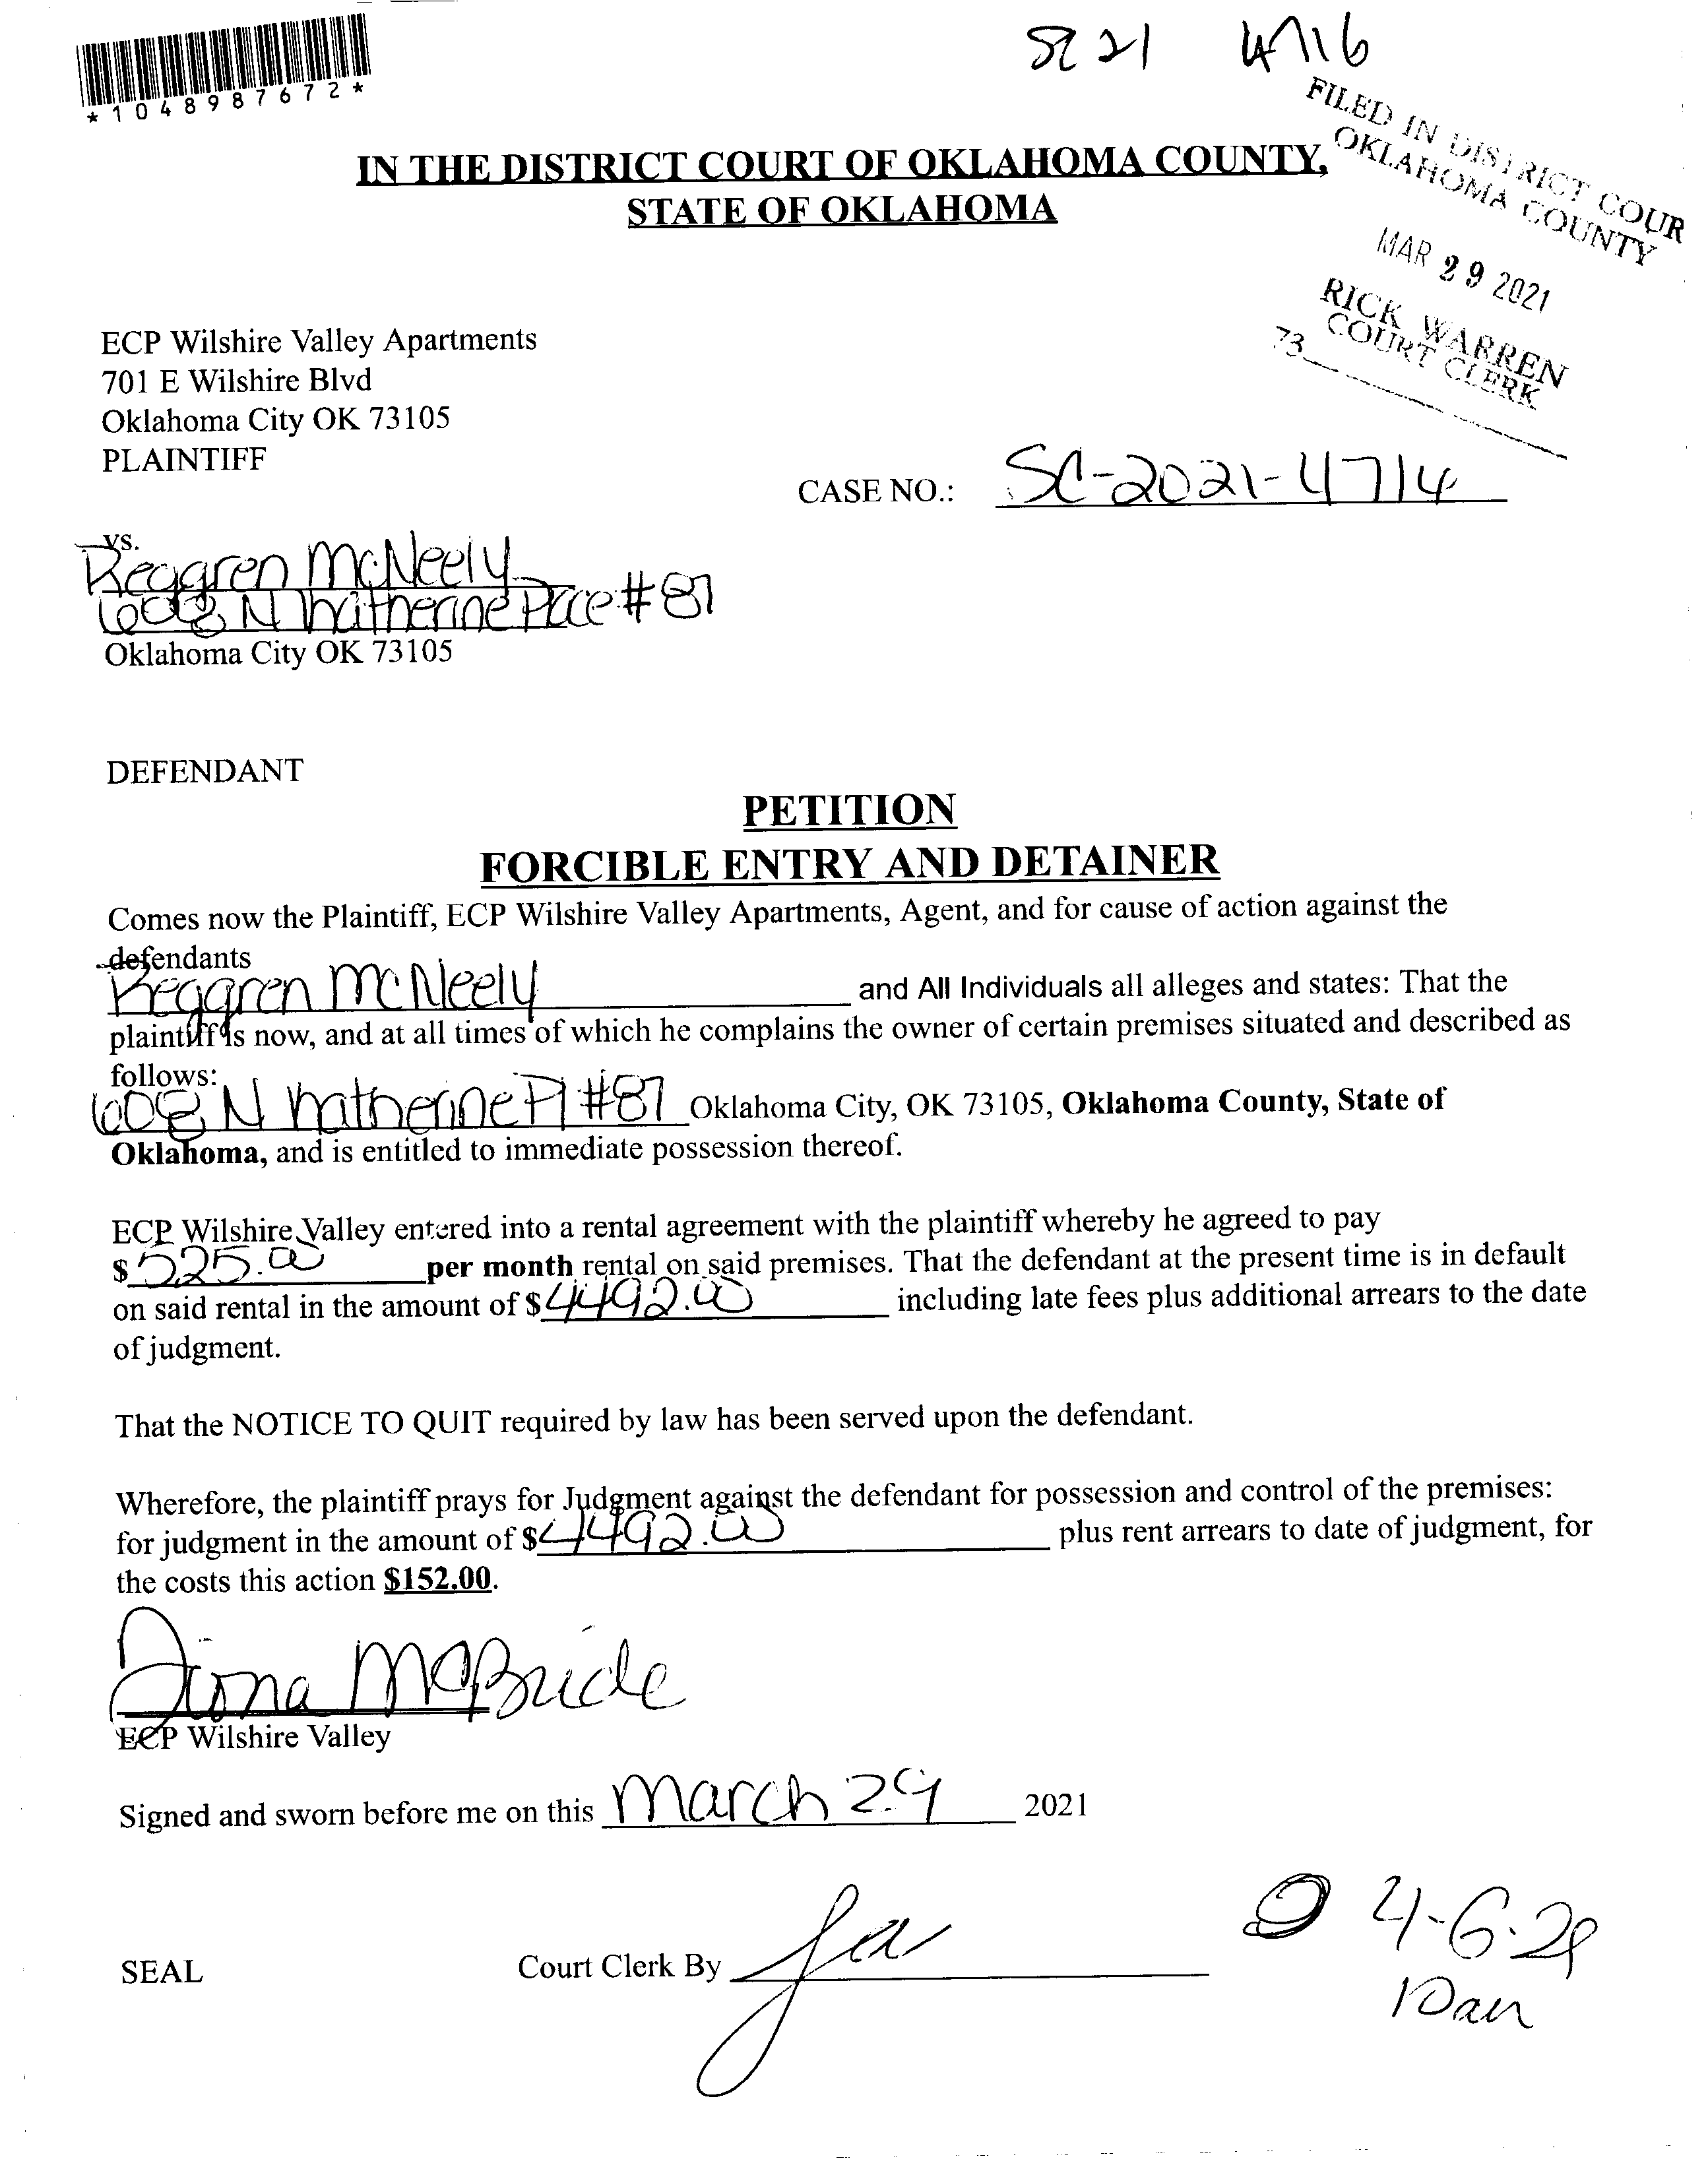 *1048987672*
SC 21 4716
FILED IN DISTRICT COUR
OKLAHOMA COUNTY
MAR 29 2021
RICK WARREN
COURT CLERK
73
IN THE DISTRICT COURT OF OKLAHOMA COUNTY,
STATE OF OKLAHOMA
ECP Wilshire Valley Apartments
701 E Wilshire Blvd
Oklahoma City OK 73105
PLAINTIFF
CASE NO.: SC-2021-4714
vs.
Reggren McNeely
6008 N Katherine Place #87
Oklahoma City OK 73105
DEFENDANT
PETITION
FORCIBLE ENTRY AND DETAINER
Comes now the Plaintiff, ECP Wilshire Valley Apartments, Agent, and for cause of action against the
defendants
Reggren McNeely and All Individuals all alleges and states: That the
plaintiff is now, and at all times of which he complains the owner of certain premises situated and described as
follows:
6008 N Katherine Pl #87 Oklahoma City, OK 73105, Oklahoma County, State of
Oklahoma, and is entitled to immediate possession thereof.
ECP Wilshire Valley entered into a rental agreement with the plaintiff whereby he agreed to pay
$525.00 per month rental on said premises. That the defendant at the present time is in default
on said rental in the amount of $4492.00 including late fees plus additional arrears to the date
of judgment.
That the NOTICE TO QUIT required by law has been served upon the defendant.
Wherefore, the plaintiff prays for Judgment against the defendant for possession and control of the premises:
for judgment in the amount of $4492.00 plus rent arrears to date of judgment, for
the costs this action $152.00.
McBride
ECP Wilshire Valley
Signed and sworn before me on this March 29 2021
4-6-21
SEAL Court Clerk By